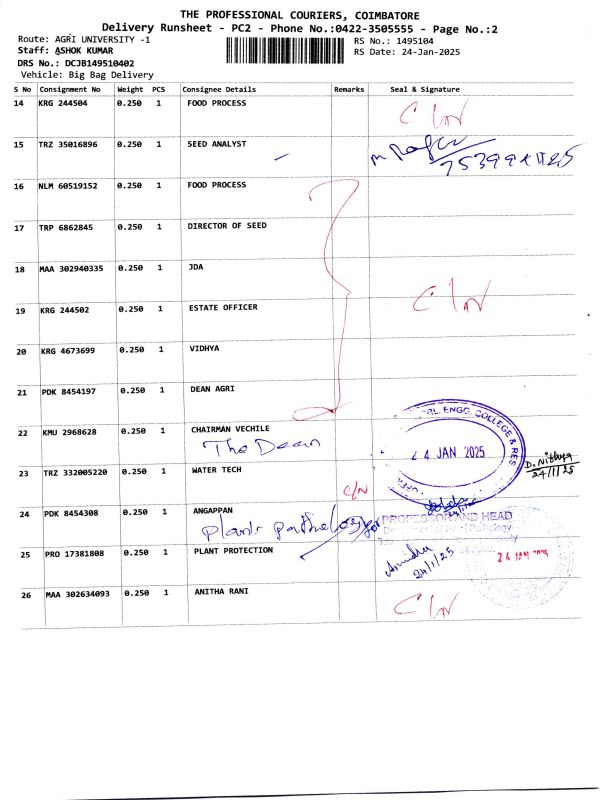 THE PROFESSIONAL COURIERS, COIMBATORE
Delivery Runsheet - PC2 - Phone No.:0422-3505555 - Page No.:2
Route: AGRI UNIVERSITY -1 RS No.: 1495104
Staff: ASHOK KUMAR RS Date: 24-Jan-2025
DRS No.: DCJB149510402
Vehicle: Big Bag Delivery
S No Consignment No Weight PCS Consignee Details Remarks Seal & Signature
14 KRG 244504 0.250 1 FOOD PROCESS C/N
15 TRZ 35016896 0.250 1 SEED ANALYST
16 NLM 60519152 0.250 1 FOOD PROCESS
17 TRP 6862845 0.250 1 DIRECTOR OF SEED
18 MAA 302940335 0.250 1 JDA
19 KRG 244502 0.250 1 ESTATE OFFICER C/N
20 KRG 4673699 0.250 1 VIDHYA
21 PDK 8454197 0.250 1 DEAN AGRI
22 KMU 2968628 0.250 1 CHAIRMAN VECHILE
The Dean
ENGG. COLLEGE & RES
24 JAN 2025
D. Nithya
24/1/25
23 TRZ 332005220 0.250 1 WATER TECH C/N
24 PDK 8454308 0.250 1 ANGAPPAN
Plant pathology
PROFESSOR AND HEAD
25 PRO 17381808 0.250 1 PLANT PROTECTION
24/1/25
24 JAN 2025
26 MAA 302634093 0.250 1 ANITHA RANI C/N